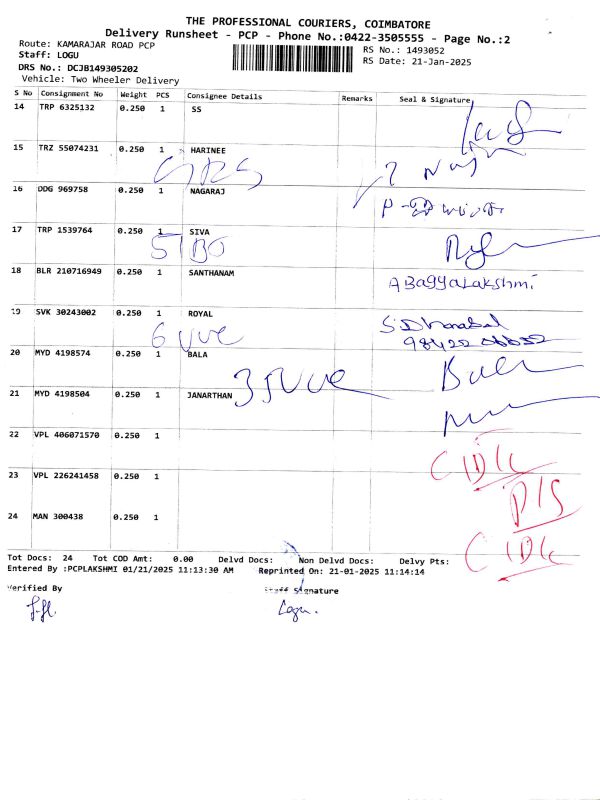 THE PROFESSIONAL COURIERS, COIMBATORE
Delivery Runsheet - PCP - Phone No.:0422-3505555 - Page No.:2
Route: KAMARAJAR ROAD PCP
Staff: LOGU
RS No.: 1493052
RS Date: 21-Jan-2025
DRS No.: DCJB149305202
Vehicle: Two Wheeler Delivery
S No Consignment No Weight PCS Consignee Details Remarks Seal & Signature
14 TRP 6325132 0.250 1 SS
15 TRZ 55074231 0.250 1 HARINEE
16 DDG 969758 0.250 1 NAGARAJ
17 TRP 1539764 0.250 1 SIVA
18 BLR 210716949 0.250 1 SANTHANAM
ABagyaLakshmi
19 SVK 30243002 0.250 1 ROYAL
20 MYD 4198574 0.250 1 BALA
21 MYD 4198504 0.250 1 JANARTHAN
22 VPL 406071570 0.250 1
23 VPL 226241458 0.250 1
24 MAN 300438 0.250 1
Tot Docs: 24 Tot COD Amt: 0.00 Delvd Docs: Non Delvd Docs: Delvy Pts:
Entered By :PCPLAKSHMI 01/21/2025 11:13:30 AM Reprinted On: 21-01-2025 11:14:14
Verified By Staff Signature
Logu.